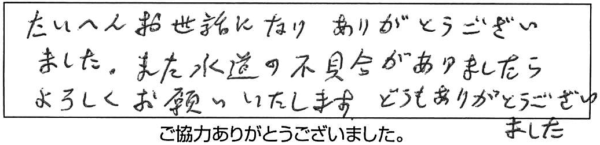 たいへんお世話になり ありがとうござい
ました。また水道の不具合がありましたら
よろしくお願いいたします どうもありがとうござい
ました
ご協力ありがとうございました。